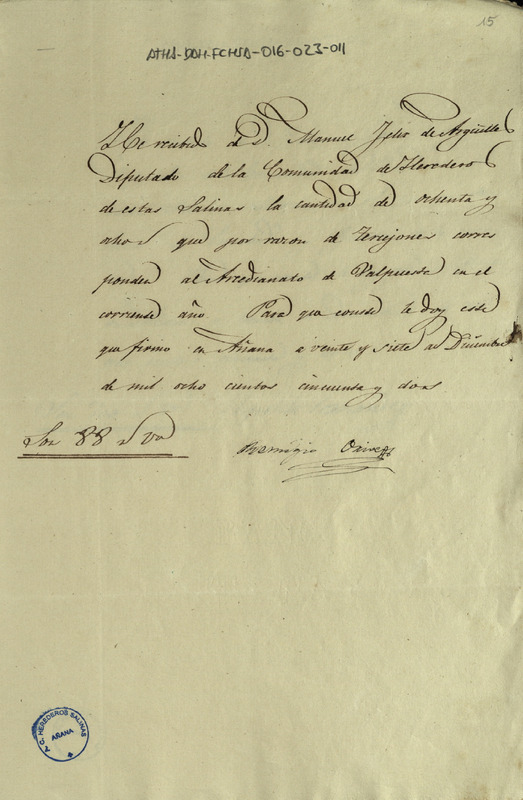 15
ATHA-DAH-FCHSA-016-023-011
He recibido de D. Manuel Felix de Argüelles
Diputado de la Comunidad de Herederos
de estas Salinas la cantidad de ochenta y
ocho rs que por razon de tercejones corres
ponden al Arcedianato de Valpuesta en el
corriente año Para que conste le doy este
que firmo en Añana a veinte y siete de Diciembre
de mil ocho cientos cincuenta y dos
Son 88 rs von
Remigio
G. HEREDEROS SALINAS
AÑANA